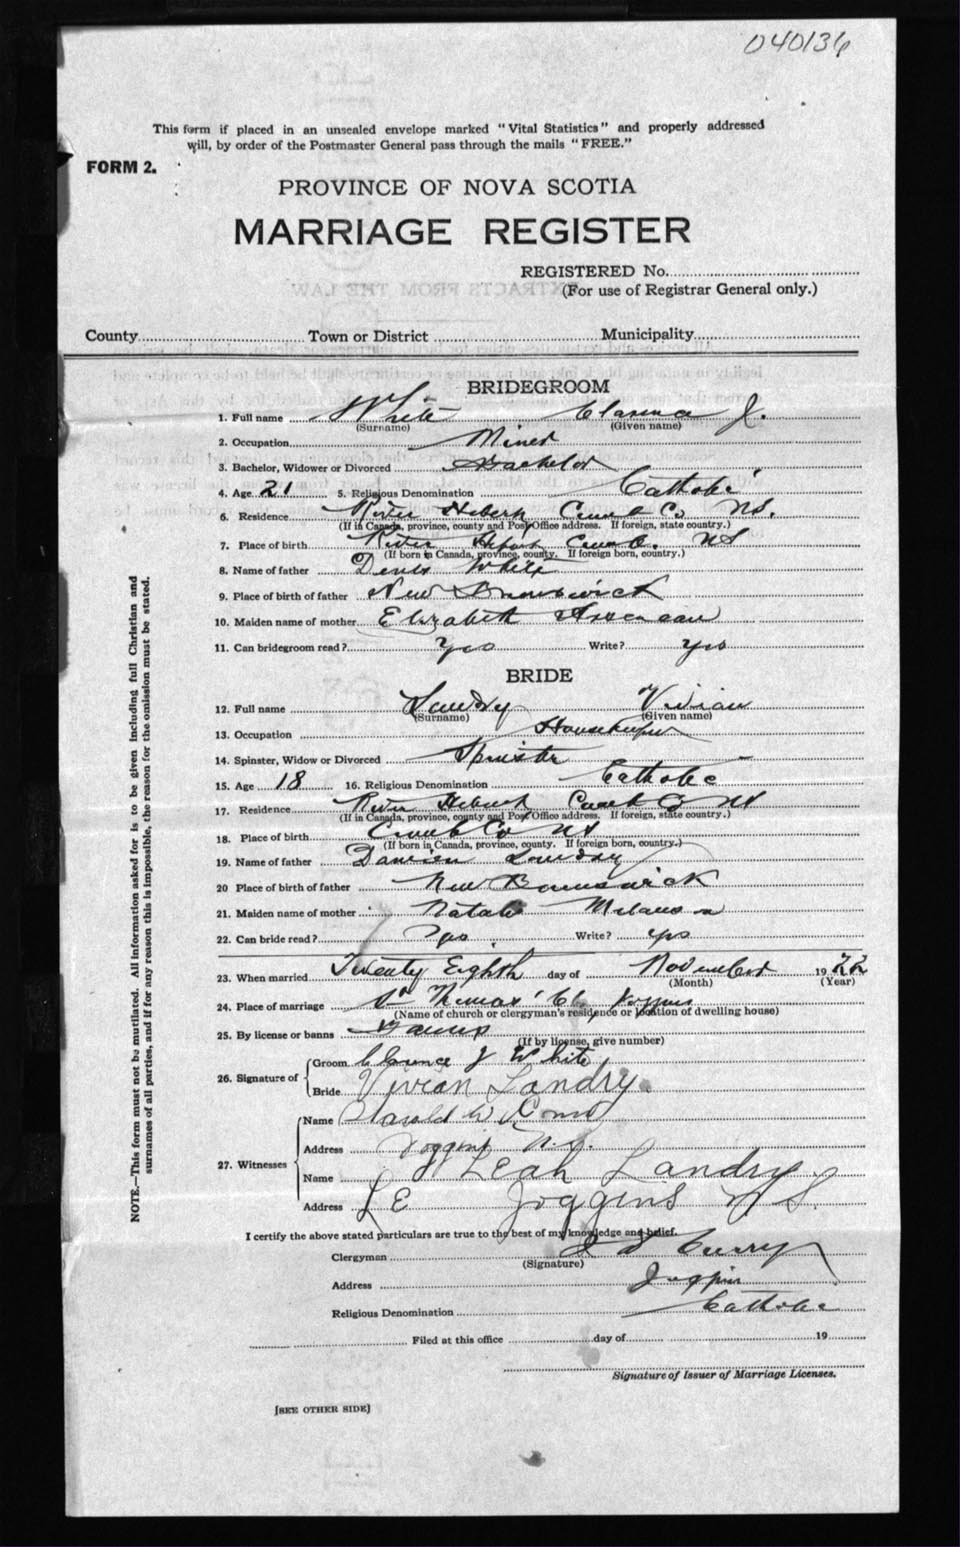 040136
This form if placed in an unsealed envelope marked "Vital Statistics" and properly addressed
will, by order of the Postmaster General pass through the mails "FREE."
FORM 2.
PROVINCE OF NOVA SCOTIA
MARRIAGE REGISTER
REGISTERED No.
(For use of Registrar General only.)
County Town or District Municipality
BRIDEGROOM
1. Full name White Clarence J.
(Surname) (Given name)
2. Occupation Miner
3. Bachelor, Widower or Divorced Bachelor
4. Age 21 5. Religious Denomination Catholic
6. Residence River Hebert Cumb Co NS.
(If in Canada, province, county and Post Office address. If foreign, state country.)
7. Place of birth River Hebert Cum Co. NS
(If born in Canada, province, county. If foreign born, country.)
8. Name of father Denis White
9. Place of birth of father New Brunswick
10. Maiden name of mother Elizabeth Arseneau
11. Can bridegroom read? Yes Write? Yes
BRIDE
12. Full name Landry Vivian
(Surname) (Given name)
13. Occupation Housekeeper
14. Spinster, Widow or Divorced Spinster
15. Age 18 16. Religious Denomination Catholic
17. Residence River Hebert Cumb Co NS
(If in Canada, province, county and Post Office address. If foreign, state country.)
18. Place of birth Cumb Co NS
(If born in Canada, province, county. If foreign born, country.)
19. Name of father Damien Landry
20 Place of birth of father New Brunswick
21. Maiden name of mother Natalie Melanson
22. Can bride read? Yes Write? yes
23. When married Twenty Eighth day of November 1922
(Month) (Year)
24. Place of marriage St Thomas' Ch Joggins
(Name of church or clergyman's residence or location of dwelling house)
25. By license or banns Banns
(If by license, give number)
26. Signature of Groom Clarence J White
Bride Vivian Landry.
27. Witnesses Name Harold W
Address Joggins N.S.
Name Leah Landry
Address Joggins N S.
I certify the above stated particulars are true to the best of my knowledge and belief.
Clergyman Curry
(Signature)
Address Joggins
Religious Denomination Catholic
Filed at this office day of 19
Signature of Issuer of Marriage Licenses.
[SEE OTHER SIDE]
NOTE.—This form must not be mutilated. All information asked for is to be given including full Christian and
surnames of all parties, and if for any reason this is impossible, the reason for the omission must be stated.